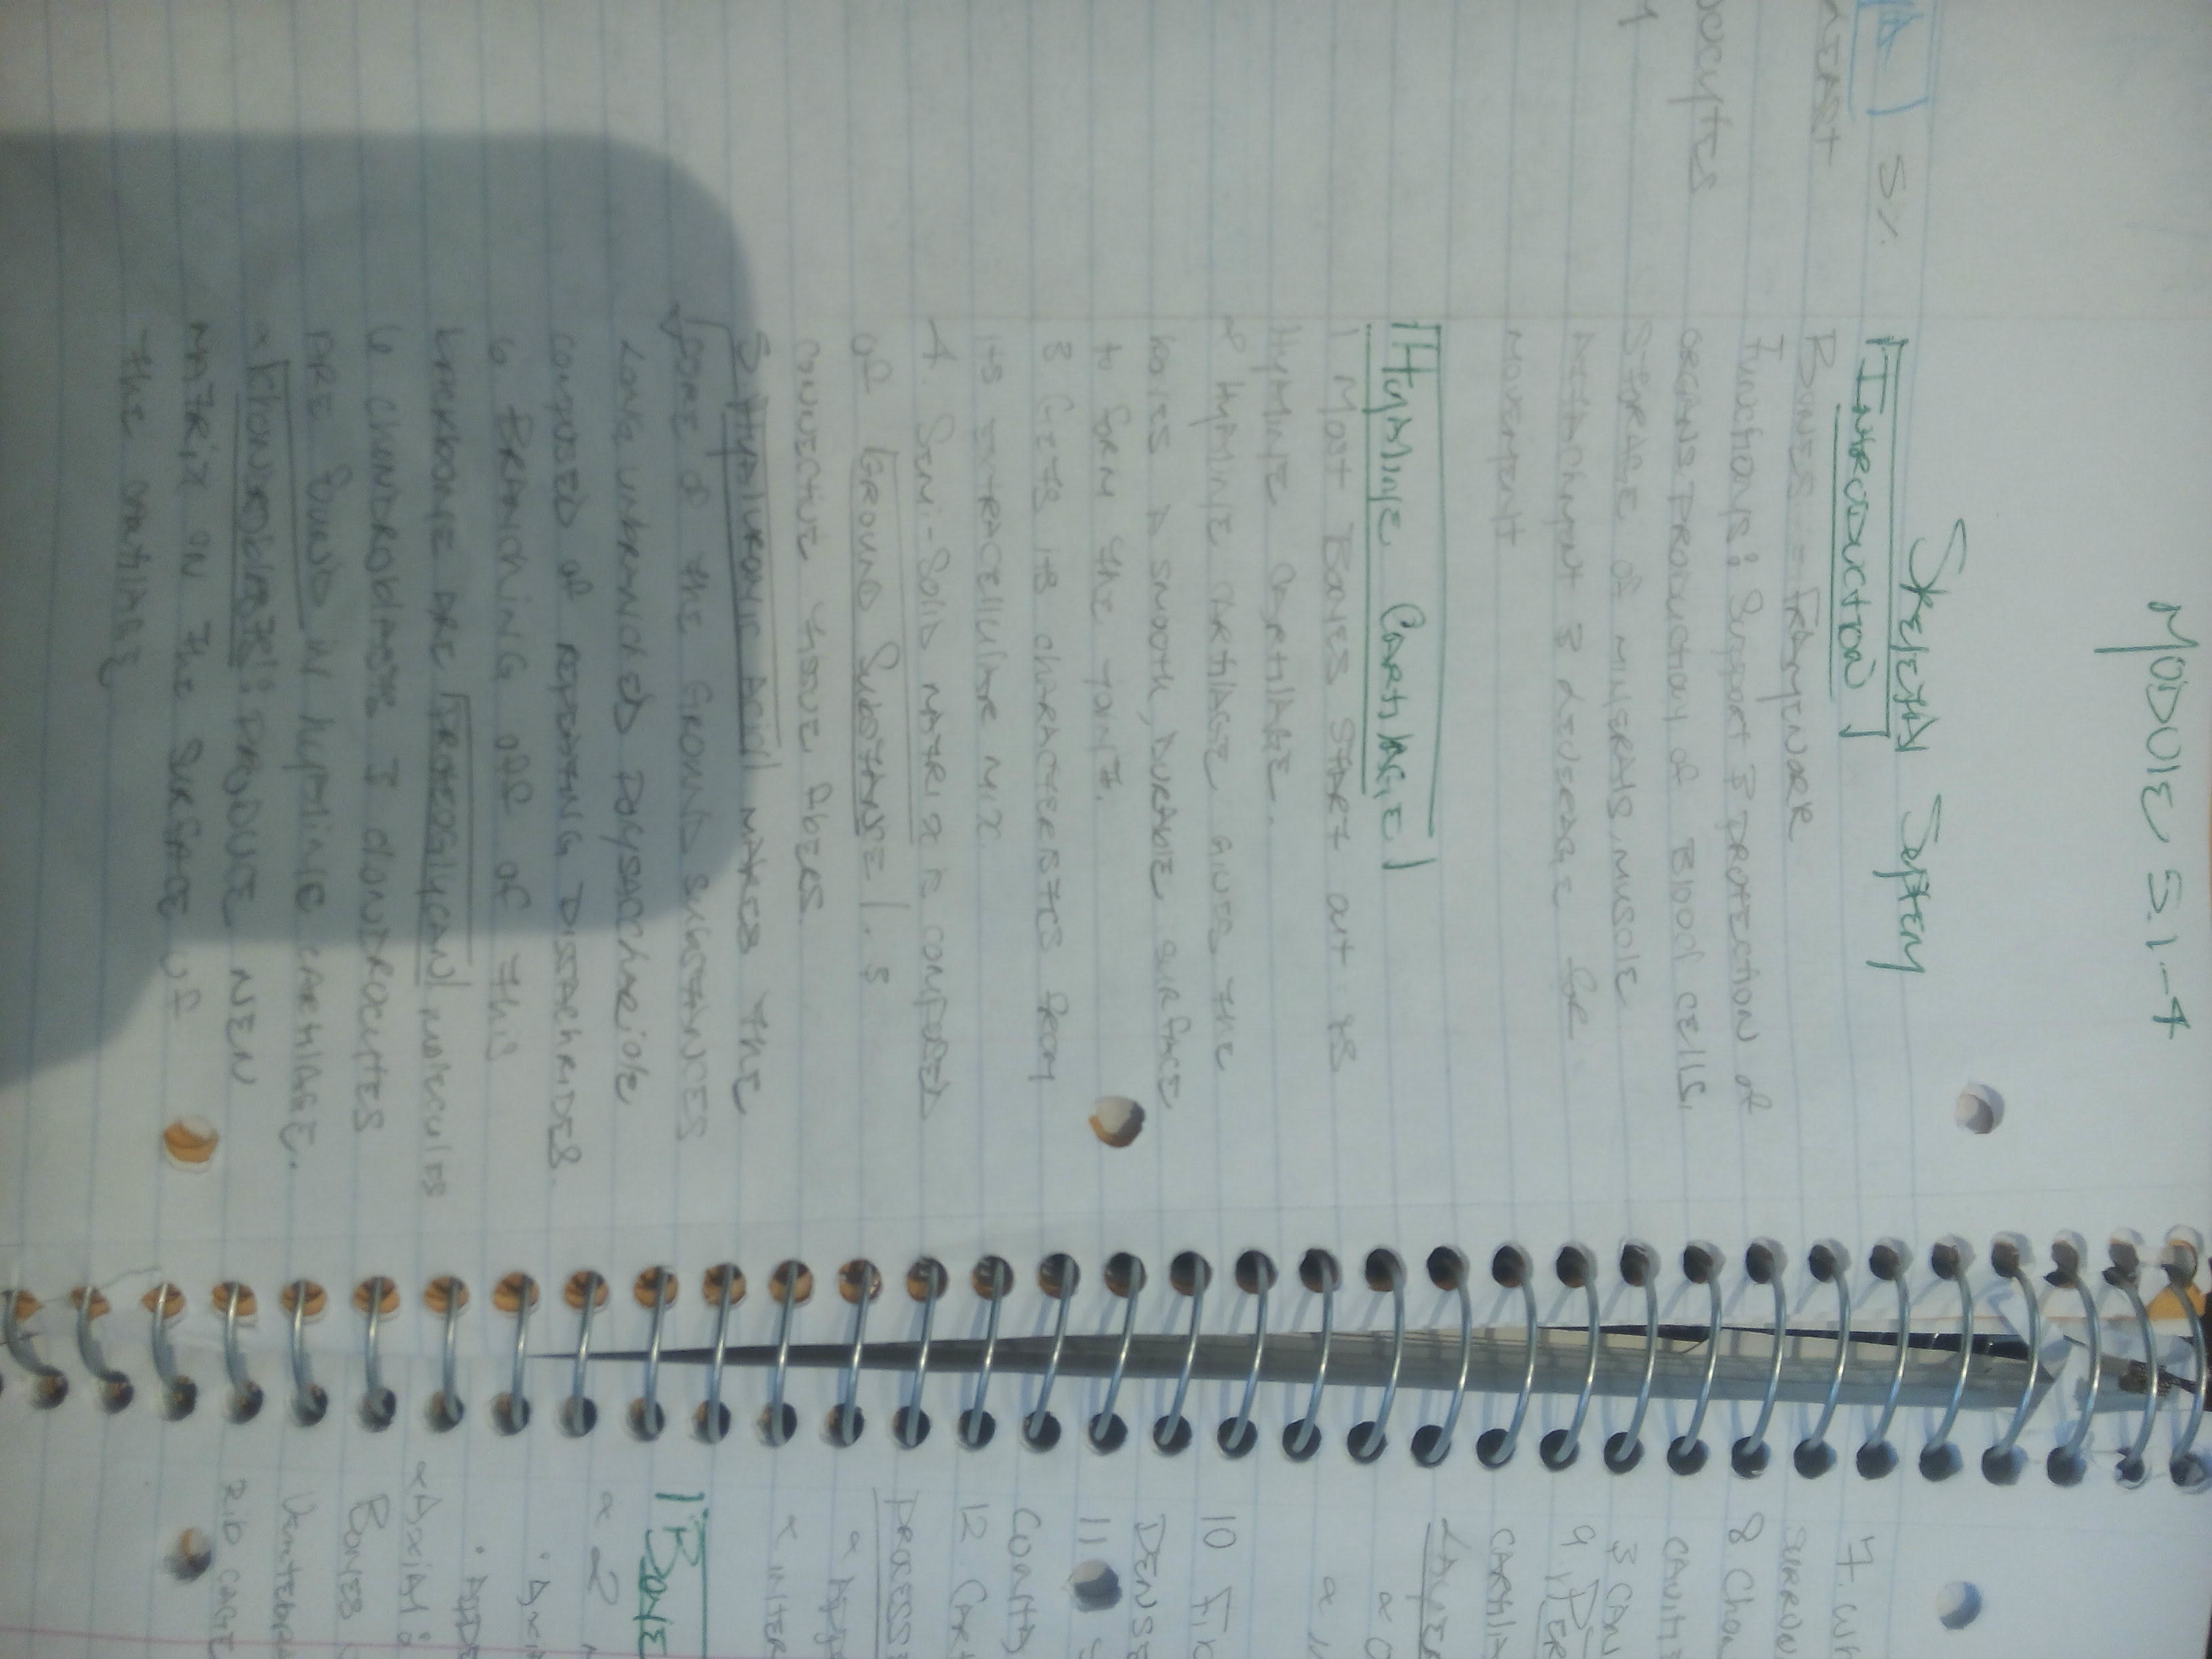 MODULE 5.1-4
Skeletal System
Introduction
Bones = Framework
Functions: Support & protection of
organs, production of Blood cells,
storage of minerals, muscle
attachment & leverage for
movement
Hyaline Cartilage
1 Most Bones start out as
Hyaline Cartilage.
2 Hyaline cartilage gives the
bones a smooth, durable surface
to form the joint.
3 Gets its characteristics from
its extracellular mix
4. Semi-Solid matrix is composed
of Ground Substanse &
connective tissue fibers.
5 Hyaluronic acid makes the
core of the Ground substances
Long unbranched polysaccharide
composed of repeating Dissachrides.
6 Branching off of this
backbone are Proteoglycan molecules
6 Chondroblasts & chondrocytes
are found in hyaline cartilage.
Chondroblasts: produce new
matrix on the surface of
the cartilage
5%
ocytes
7. Wh
8 Chon
cavitie
& can
cartila
Layer
10 Fib
Dense
11
12 Cart
Process
Bone
2
Axial:
Bones
Vertebra
rib cage